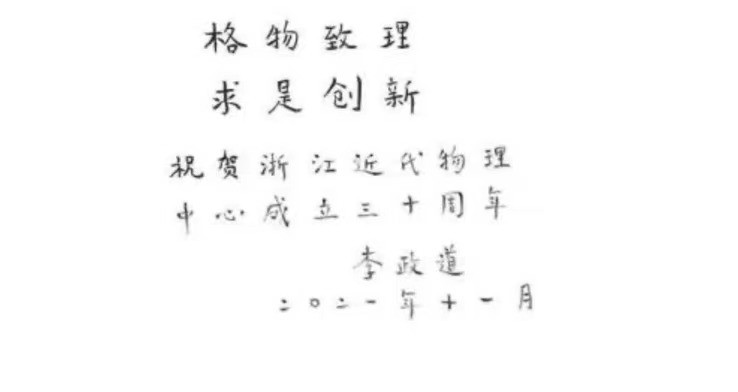 格物致理
求是创新
祝贺浙江近代物理
中心成立三十周年
李政道
二〇二一年十一月